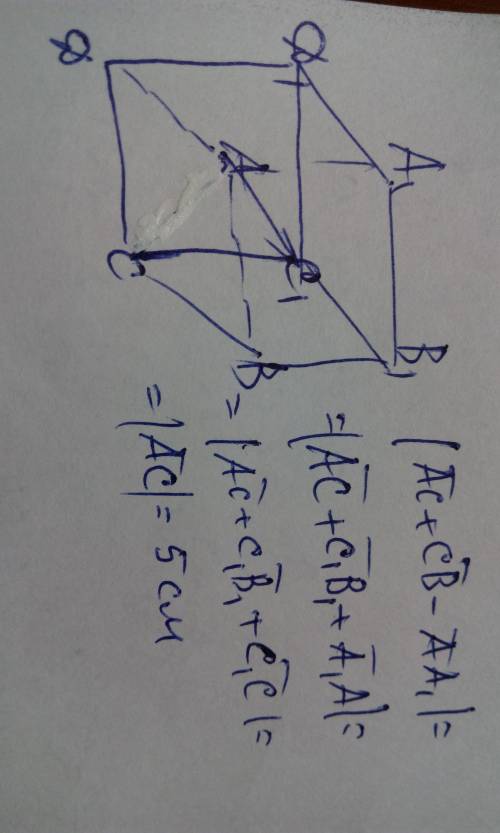 A₁ B₁
D₁ C₁
A B
D C
|A̅C̅ + C̅B̅ - A̅A̅₁| =
= |A̅C̅ + C₁B̅₁ + A̅₁A| =
= |A̅C̅ + C₁B̅₁ + C₁C̅| =
= |A̅C̅| = 5 см